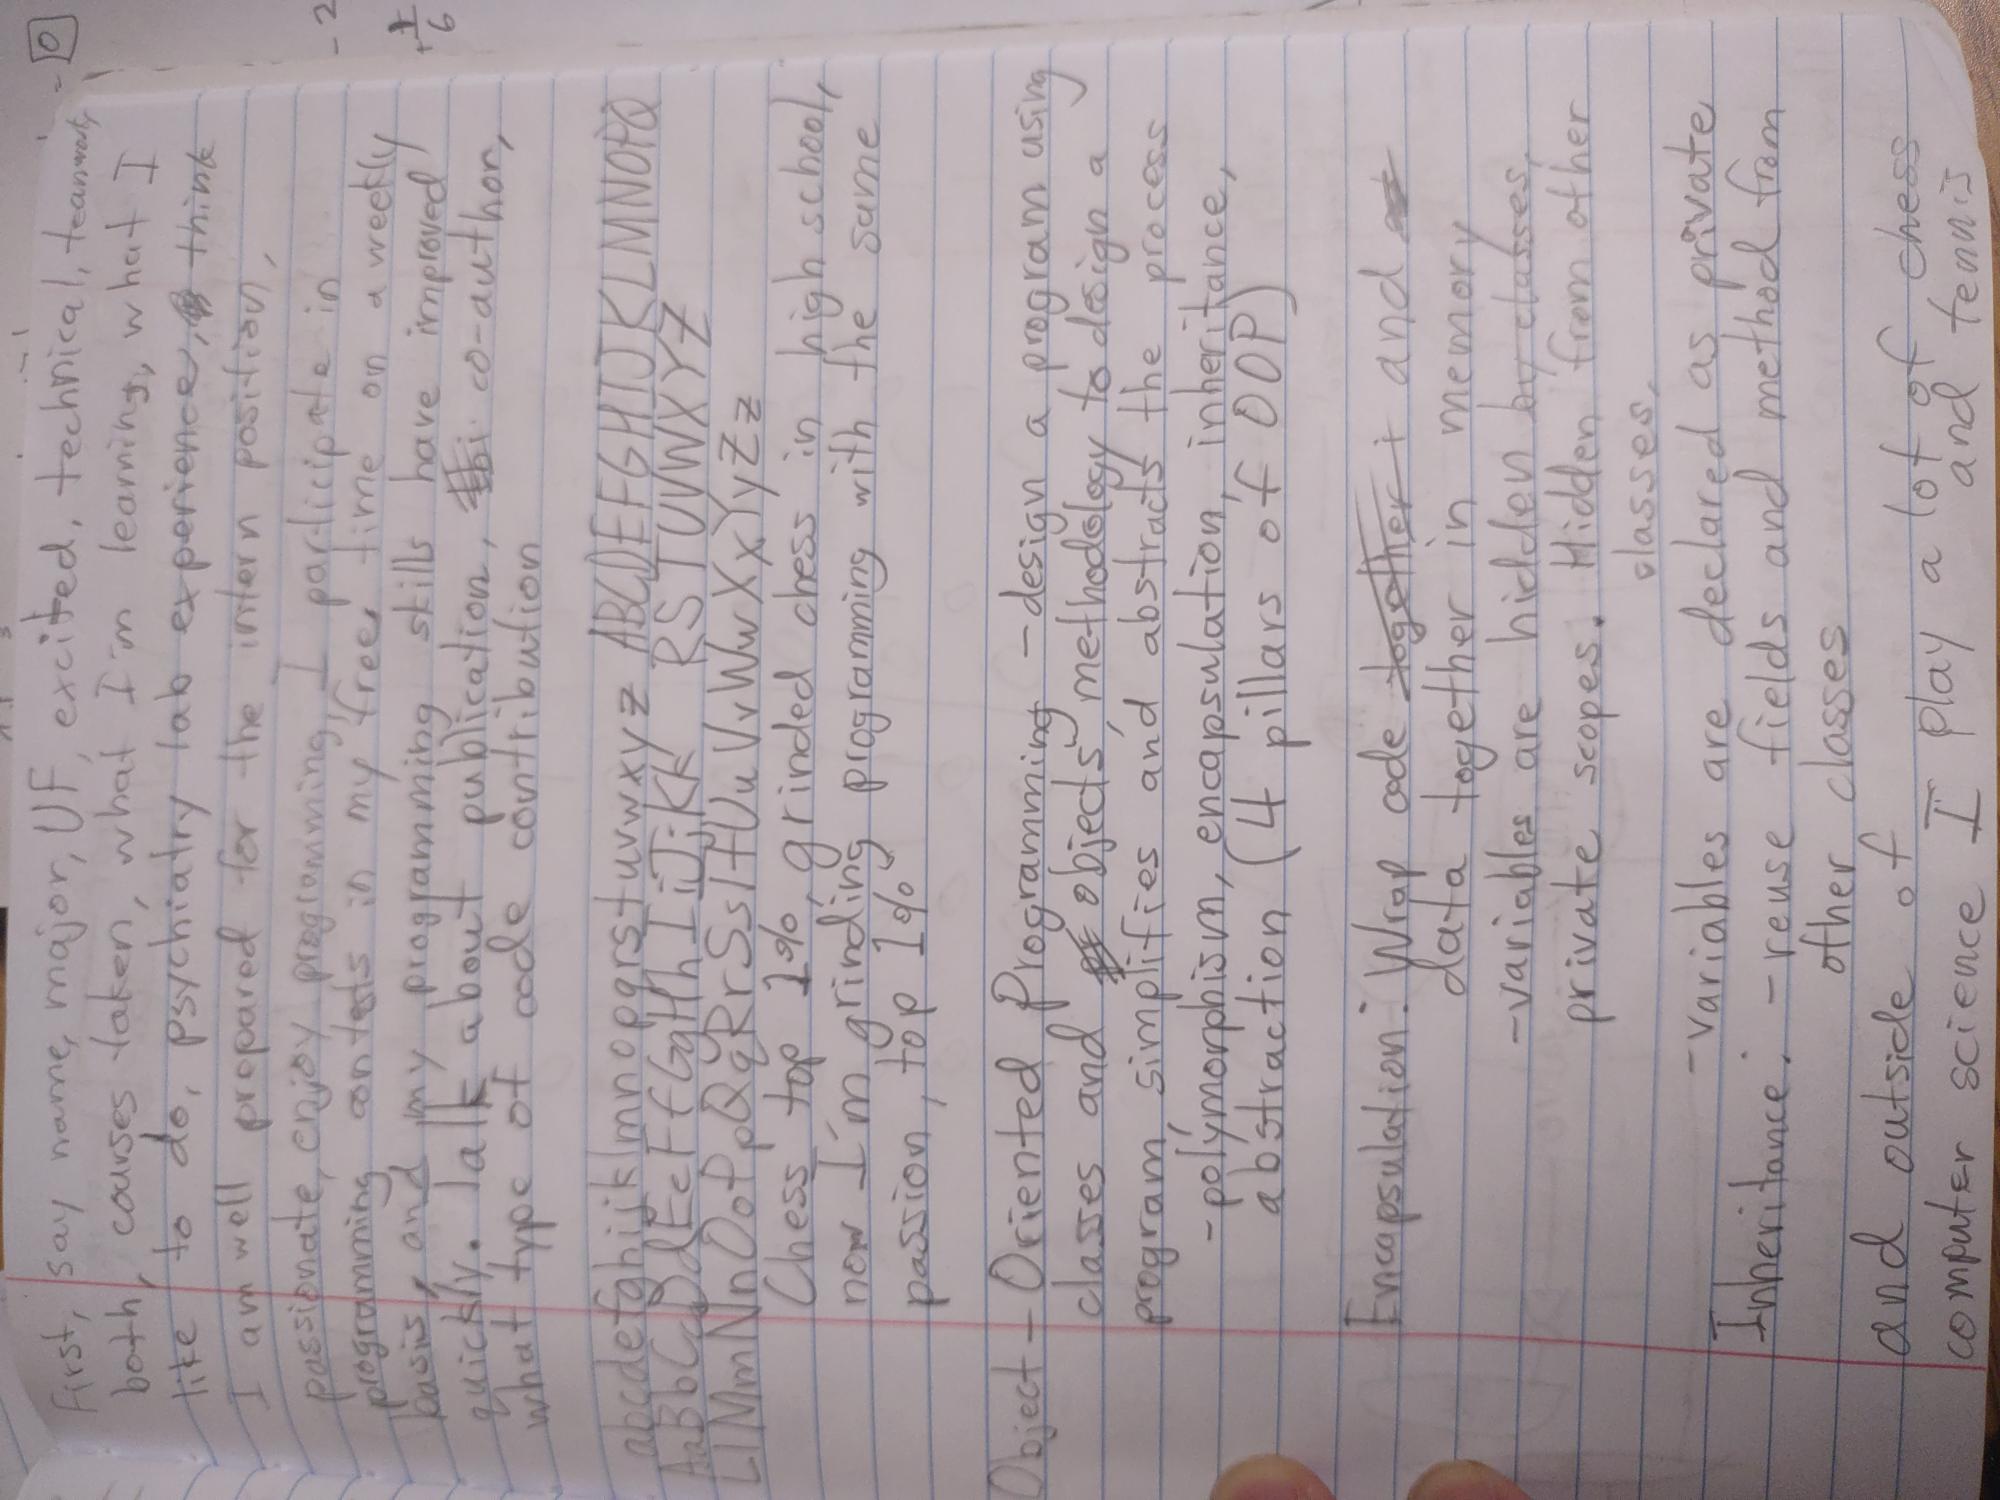 First, say name, major, UF, excited, technical, teamwork,
both, courses taken, what I'm learning, what I
like to do, psychiatry lab experience, think
I am well prepared for the intern position,
passionate, enjoy programming, I participate in
programming contests in my free time on a weekly
basis, and my programming skills have improved
quickly. Talk about publication, co-author,
what type of code contribution
abcdefghijklmnopqrstuvwxyz ABCDEFGHIJKLMNOPQ
AaBbCcDdEeFfGgHhIiJjKk RSTUVWXYZ
LlMmNnOoPpQqRrSsTtUuVvWwXxYyZz
Chess top 1%, grinded chess in high school,
now I'm grinding programming with the same
passion, top 1%
Object-Oriented Programming - design a program using
classes and objects, methodology to design a
program, simplifies and abstracts the process
- polymorphism, encapsulation, inheritance,
abstraction (4 pillars of OOP)
Encapsulation: Wrap code together and
data together in memory
- variables are hidden by classes,
private scopes. Hidden from other
classes.
- variables are declared as private
Inheritance: - reuse fields and method from
other classes
and outside of
computer science I play a lot of chess
and tennis
0
- 2